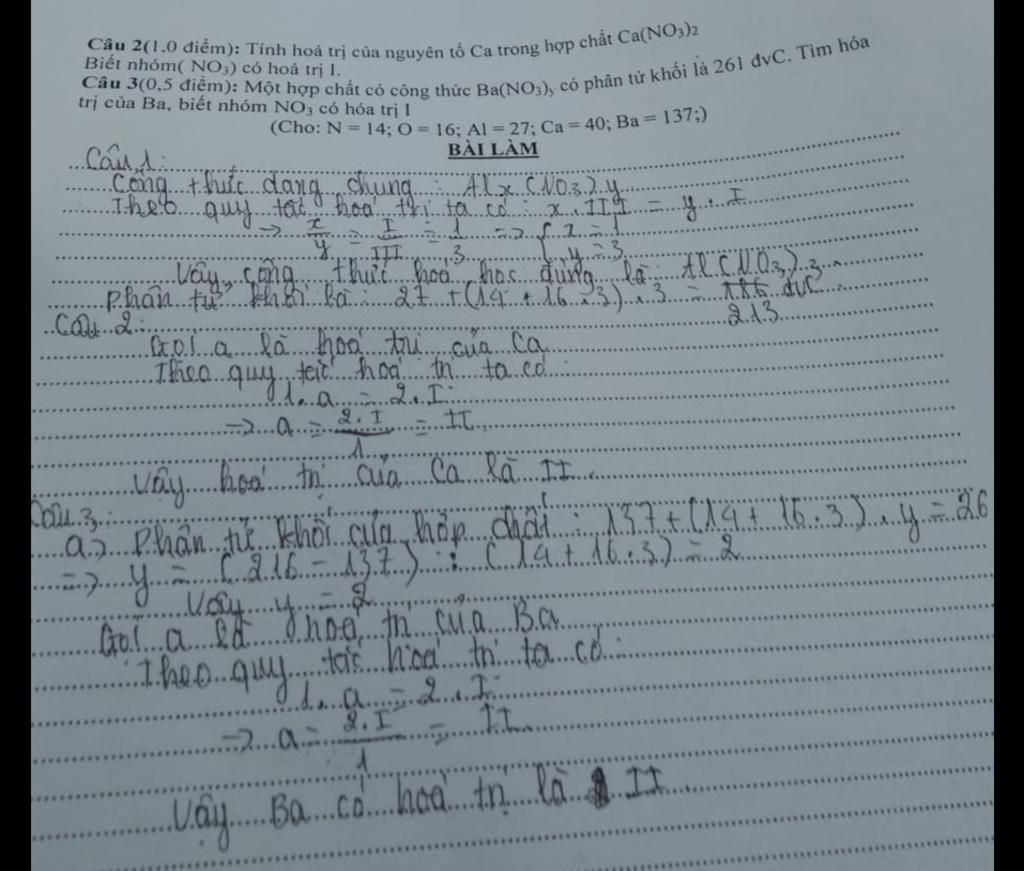 Câu 2(1.0 điểm): Tính hoá trị của nguyên tố Ca trong hợp chất Ca(NO₃)₂
Biết nhóm( NO₃) có hoá trị I.
Câu 3(0,5 điểm): Một hợp chất có công thức Ba(NO₃)ᵧ có phân tử khối là 261 đvC. Tìm hóa
trị của Ba, biết nhóm NO₃ có hóa trị I
(Cho: N = 14; O = 16; Al = 27; Ca = 40; Ba = 137;)
BÀI LÀM
Câu 1:
Công thức dạng chung: Alx(NO₃)y
Theo quy tắc hoá trị ta có: x.III = y.I
→ x/y = I/III = 1/3 => { x = 1
y = 3
Vậy, công thức hoá học đúng là: Al(NO₃)3
Phân tử khối là: 27 + (14 + 16.3).3 = đvC
213
Câu 2:
Gọi a là hoá trị của Ca
Theo quy tắc hoá trị ta có:
1.a = 2.I
→ a = 2.I/1 = II
Vậy hoá trị của Ca là II.
Câu 3:
a> Phân tử khối của hợp chất: 137+(14+16.3).y = 26
=> y = (216 - 137) : (14+16.3) = 2
Vậy y = 2
Gọi a là hoá trị của Ba
Theo quy tắc hoá trị ta có:
1.a = 2.I
→ a = 2.I/1 = II
Vậy Ba có hoá trị là II